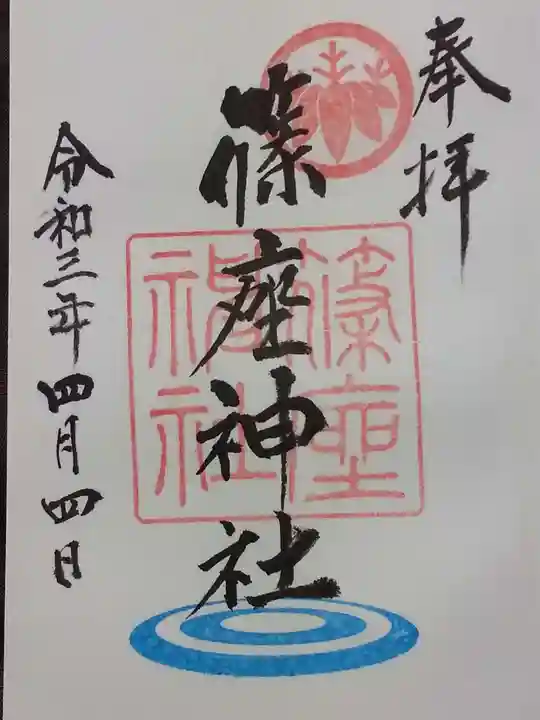 奉拝
篠座神社
篠座神社
令和三年四月四日